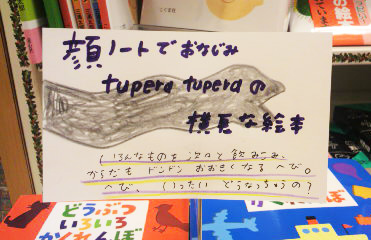 こぐま社
顔ノートでおなじみ
tupera tuperaの
横長な絵本
いろんなものを次々と飲みこみ、
からだも ドンドン おおきくなる へび。
へび、いったい どうなっちゃうの?
どうぶつ
いろいろ
かくれんぼ